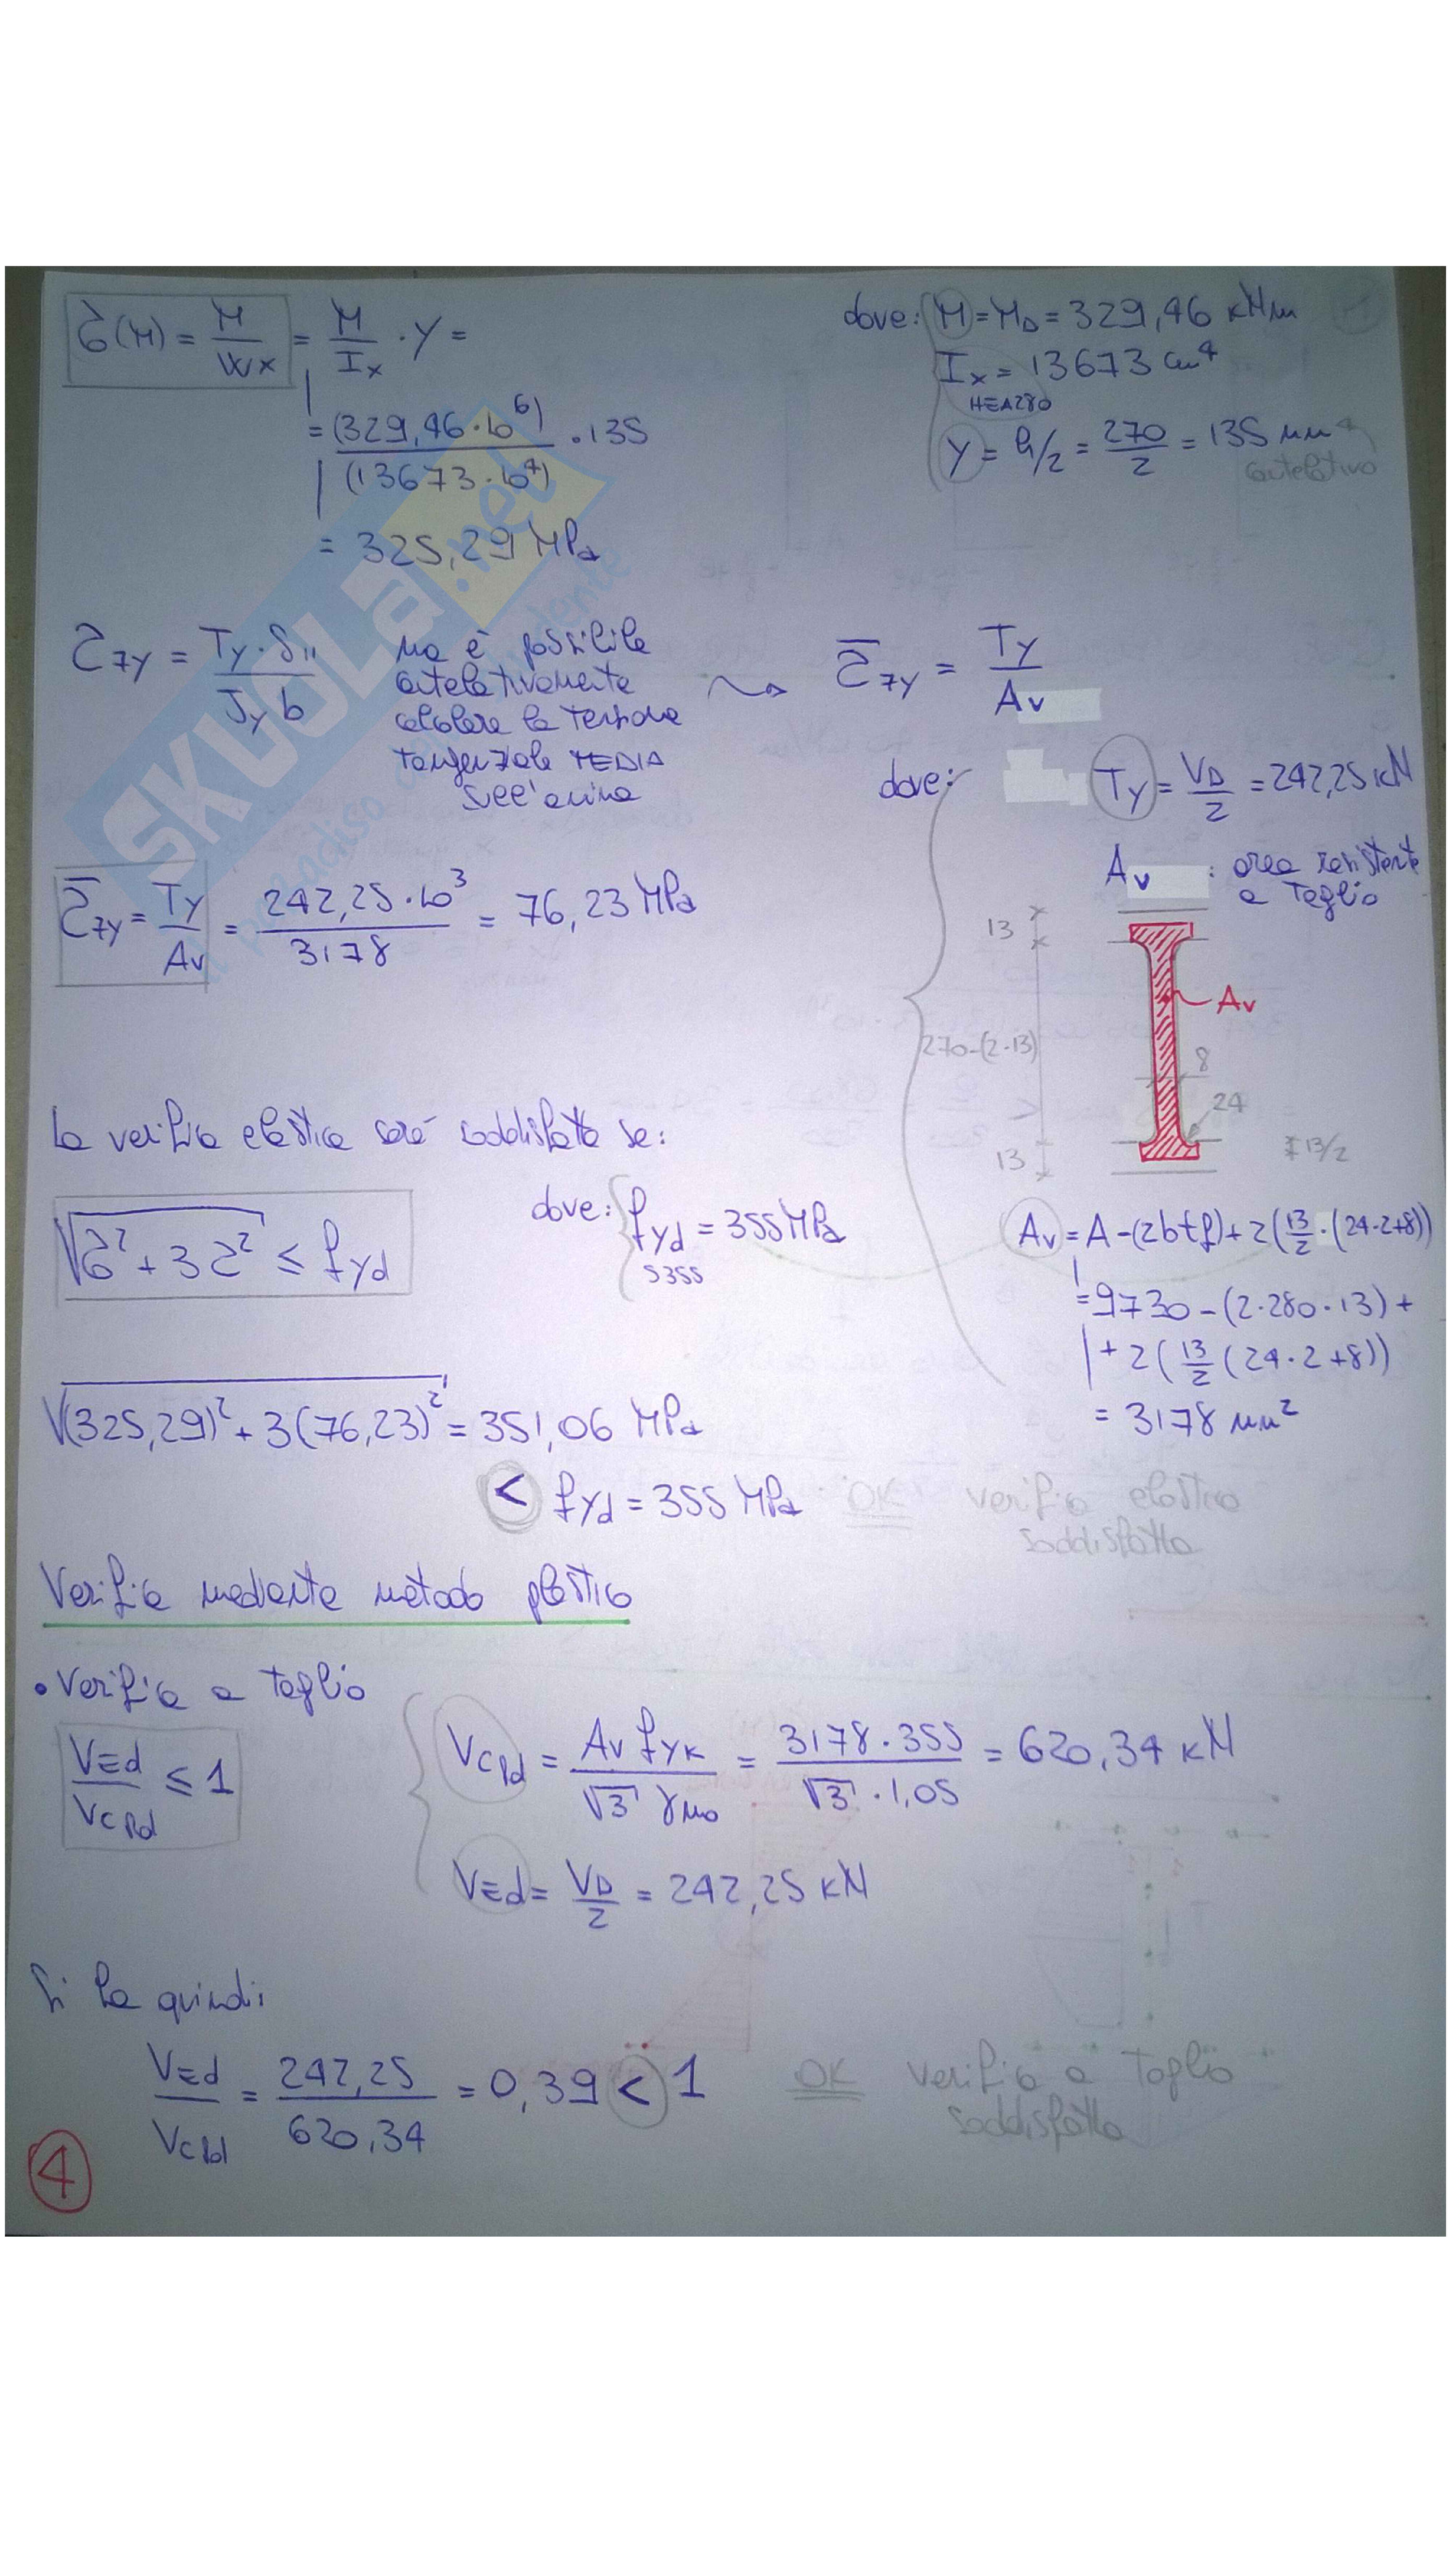 σ(M) = M/Wx = M/Ix · y =
= (329,46·10⁶)/(13673·10⁴) · 135
= 325,29 MPa
dove: M = MD = 329,46 kNm
Ix = 13673 cm⁴
HEA280
y = h/2 = 270/2 = 135 mm
cautelativo
τzy = Ty·Sn/Jy b
ma è possibile
cautelativamente
calcolare la tensione
tangenziale MEDIA
sull'anima
τ̄zy = Ty/Av
dove:
Ty = VD/2 = 242,25 kN
Av : area resistente
a taglio
τ̄zy = Ty/Av = 242,25·10³/3178 = 76,23 MPa
13
270-(2·13)
13
Av
8
24
13/2
Av = A-(2btf)+2(13/2·(24·2+8))
= 9730-(2·280·13)+
+2(13/2(24·2+8))
= 3178 mm²
La verifica elastica sarà soddisfatta se:
√σ²+3τ² ≤ fyd
dove: fyd = 355 MPa
S355
√(325,29)²+3(76,23)² = 351,06 MPa
< fyd = 355 MPa OK verifica elastica
soddisfatta
Verifica mediante metodo plastico
• Verifica a taglio
VEd/VcRd ≤ 1
VcRd = Av fyk/√3 γM0 = 3178·355/√3·1,05 = 620,34 kN
VEd = VD/2 = 242,25 kN
Si ha quindi:
VEd/VcRd = 242,25/620,34 = 0,39 < 1 OK verifica a taglio
soddisfatta
4
SKUOLA.net
il paradiso dello studente